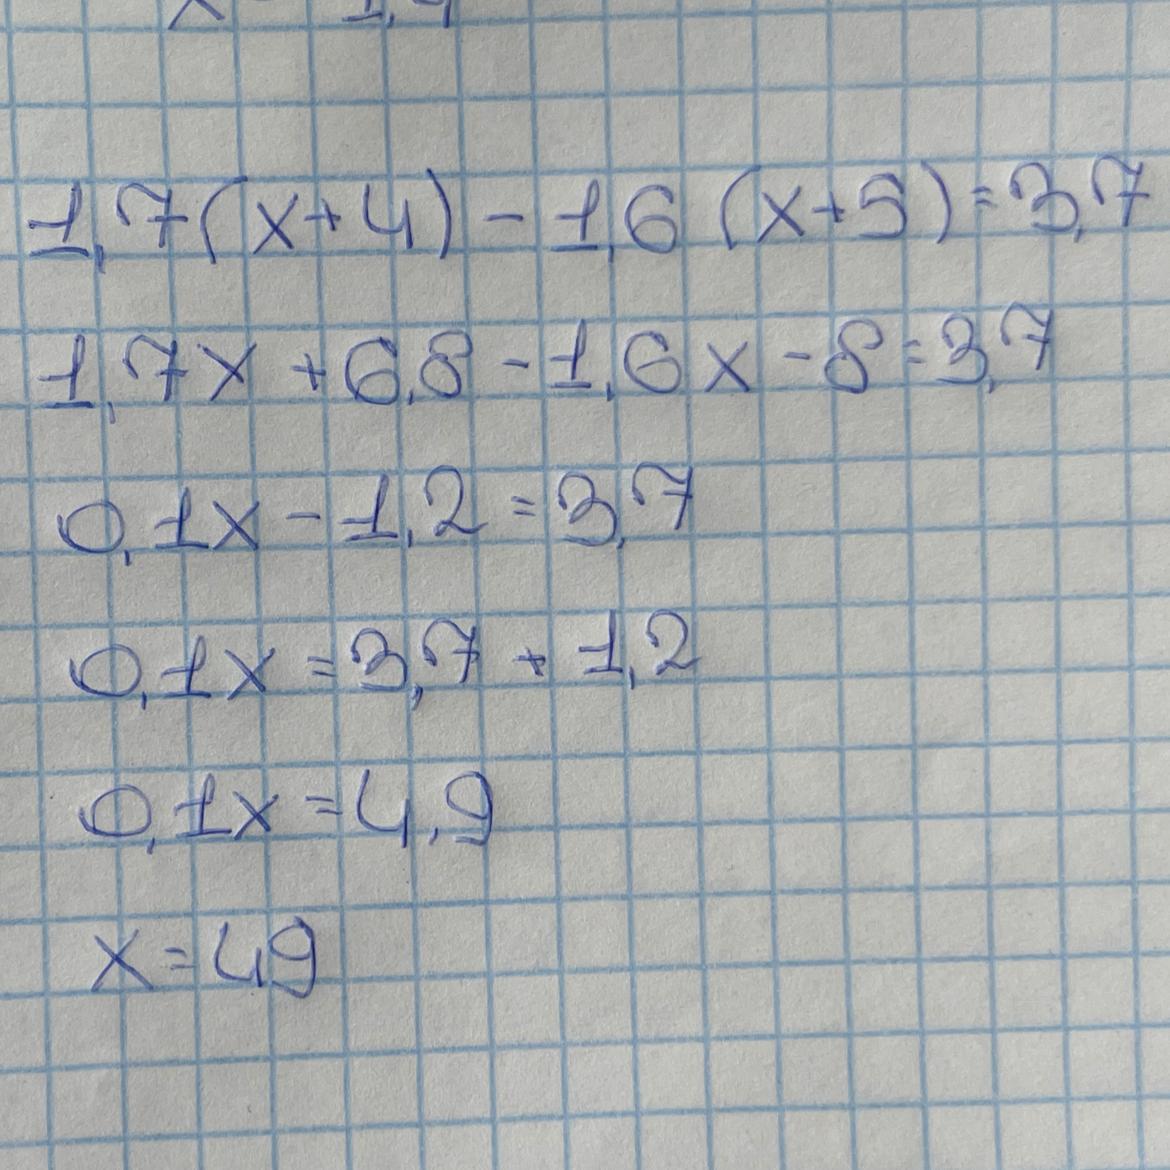 1,7(x+4)-1,6(x+5)=3,7
1,7x+6,8-1,6x-8=3,7
0,1x-1,2=3,7
0,1x=3,7+1,2
0,1x=4,9
x=49